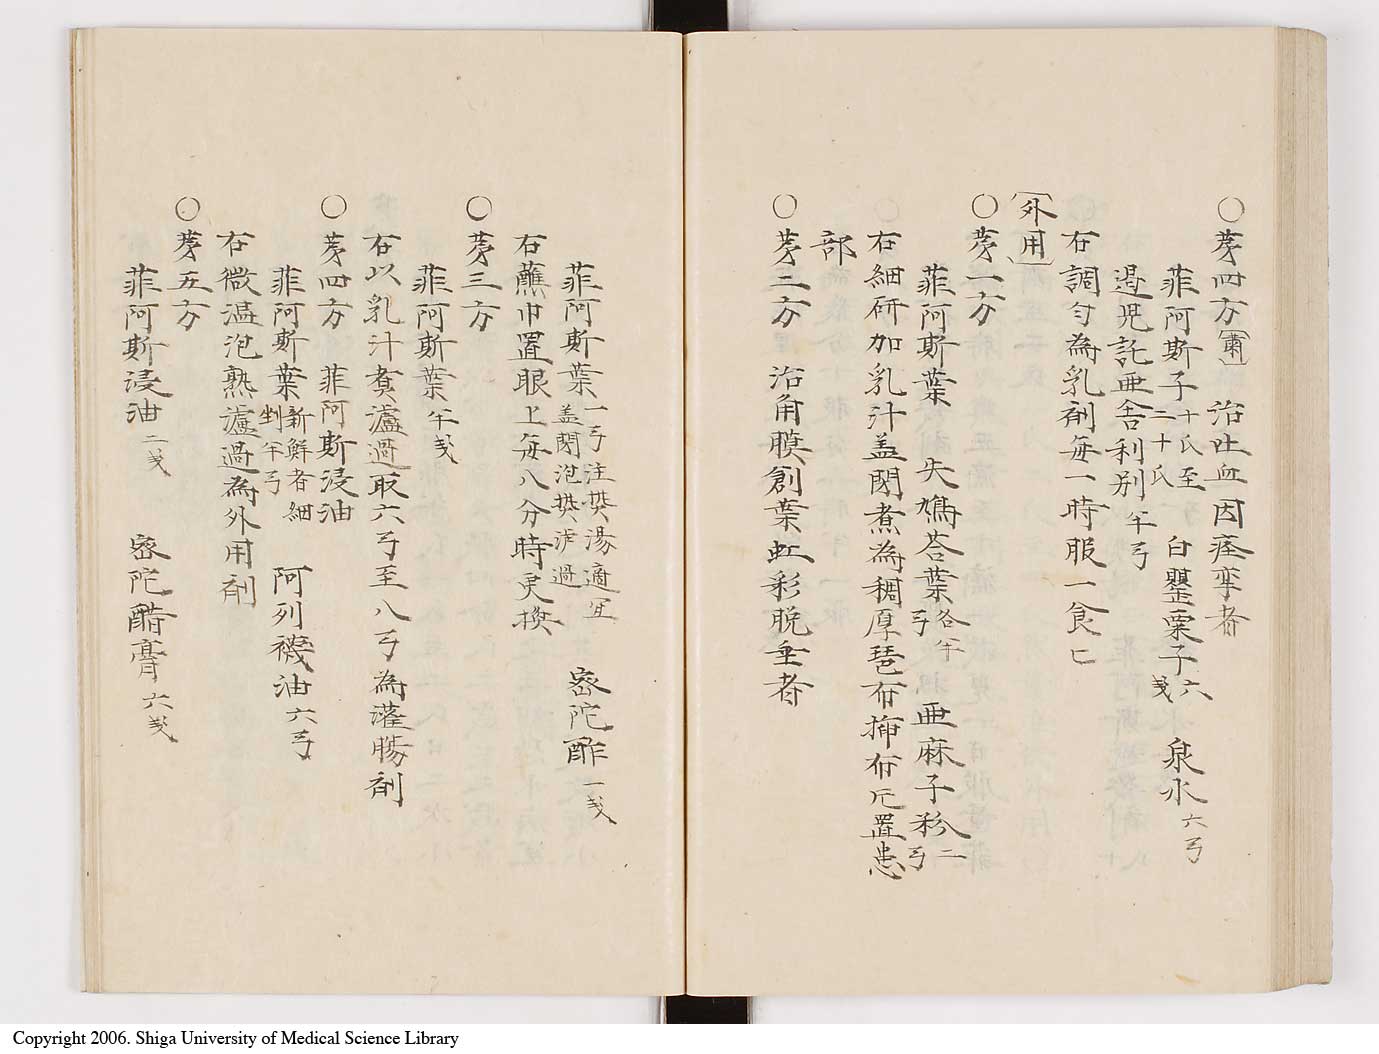 ○第四方〔粛〕 治吐血因痙挛者
菲阿斯子 十氏至二十氏 白罌粟子 六戔 泉水 六弓
過児託亜舎利別 半弓
右調匀為乳剤毎一時服一食匕
〔外用〕
○第一方
菲阿斯葉 失鳩荅葉 各半弓 亜麻子粉 二弓
右細研加乳汁盖閉煮為稠厚琶布摊布片置患
部
○第二方 治角膜創葉虹彩脱垂者
菲阿斯葉 一弓注𤍠湯適宜盖閉泡𤍠濾過 密陀酢 一戔
右蘸巾置眼上毎八分時更換
○第三方
菲阿斯葉 半戔
右以乳汁煮濾過取六弓至八弓為灌腸剤
○第四方 菲阿斯浸油
菲阿斯葉 新鮮者細剉半弓 阿列襪油 六弓
右微温泡熟濾過為外用剤
○第五方
菲阿斯浸油 二戔 密陀醋膏 六戔
Copyright 2006. Shiga University of Medical Science Library